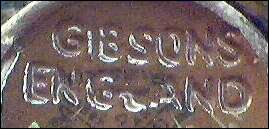 GIBSONS
ENGLAND